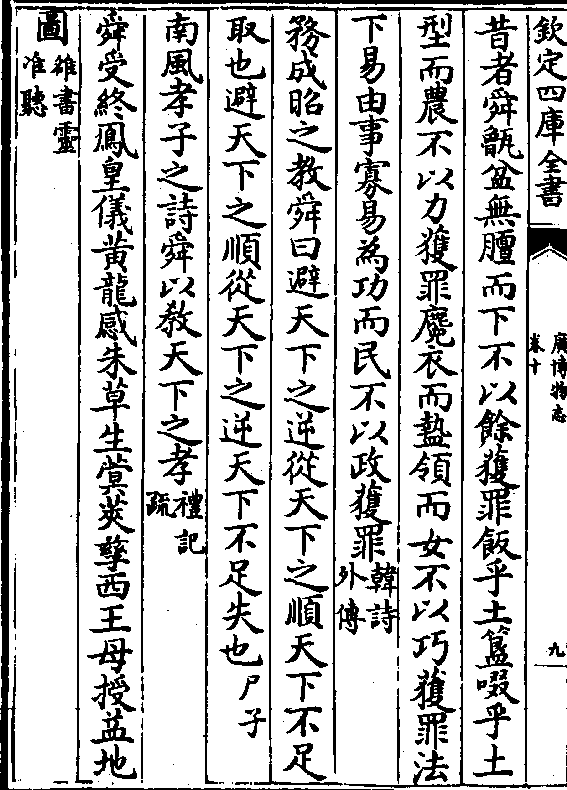 欽定四庫全書
廣博物志
卷十
九
昔者舜甑盆無膻而下不以餘獲罪飯乎土簋啜乎土
型而農不以力獲罪麑衣而盩領而女不以巧獲罪法
下易由事寡易為功而民不以政獲罪韓詩外傳
務成昭之教舜曰避天下之逆從天下之順天下不足
取也避天下之順從天下之逆天下不足失也尸子
南風孝子之詩舜以教天下之孝禮記疏
舜受終鳳皇儀黄龍感朱草生蓂莢孳西王母授益地
圖雒書靈准聽